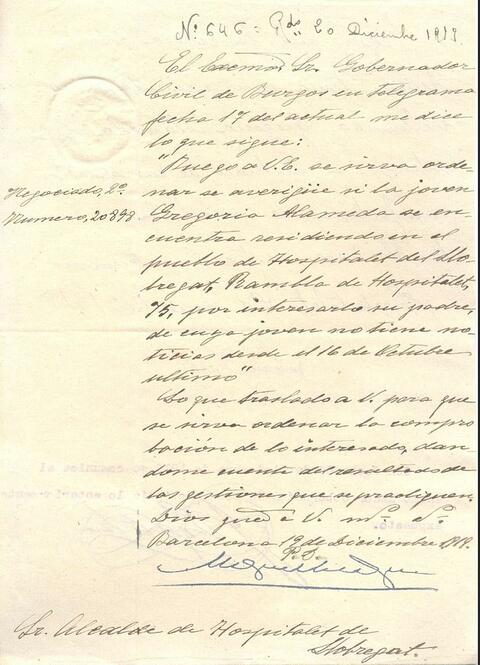 Nº 646 = Rdo 20 Diciembre 1919
El Excmo Sr. Gobernador
Civil de Burgos en telegrama
fecha 17 del actual me dice
lo que sigue:
"Ruego a V.E. se sirva orde-
nar se averigüe si la joven
Negociado, 2º
Numero, 20898
Gregoria Alameda se en-
cuentra residiendo en el
pueblo de Hospitalet del Llo-
bregat, Rambla de Hospitalet,
75, por interesarlo su padre,
de cuya joven no tiene no-
ticias desde el 16 de Octubre
ultimo"
Lo que traslado a V. para que
se sirva ordenar la compro
bación de lo interesado, dan
dome cuenta del resultado de
las gestiones que se practiquen.
Dios gue a V. ms. as.
Barcelona 19 de Diciembre 1919.
Sr. Alcalde de Hospitalet de
Llobregat.